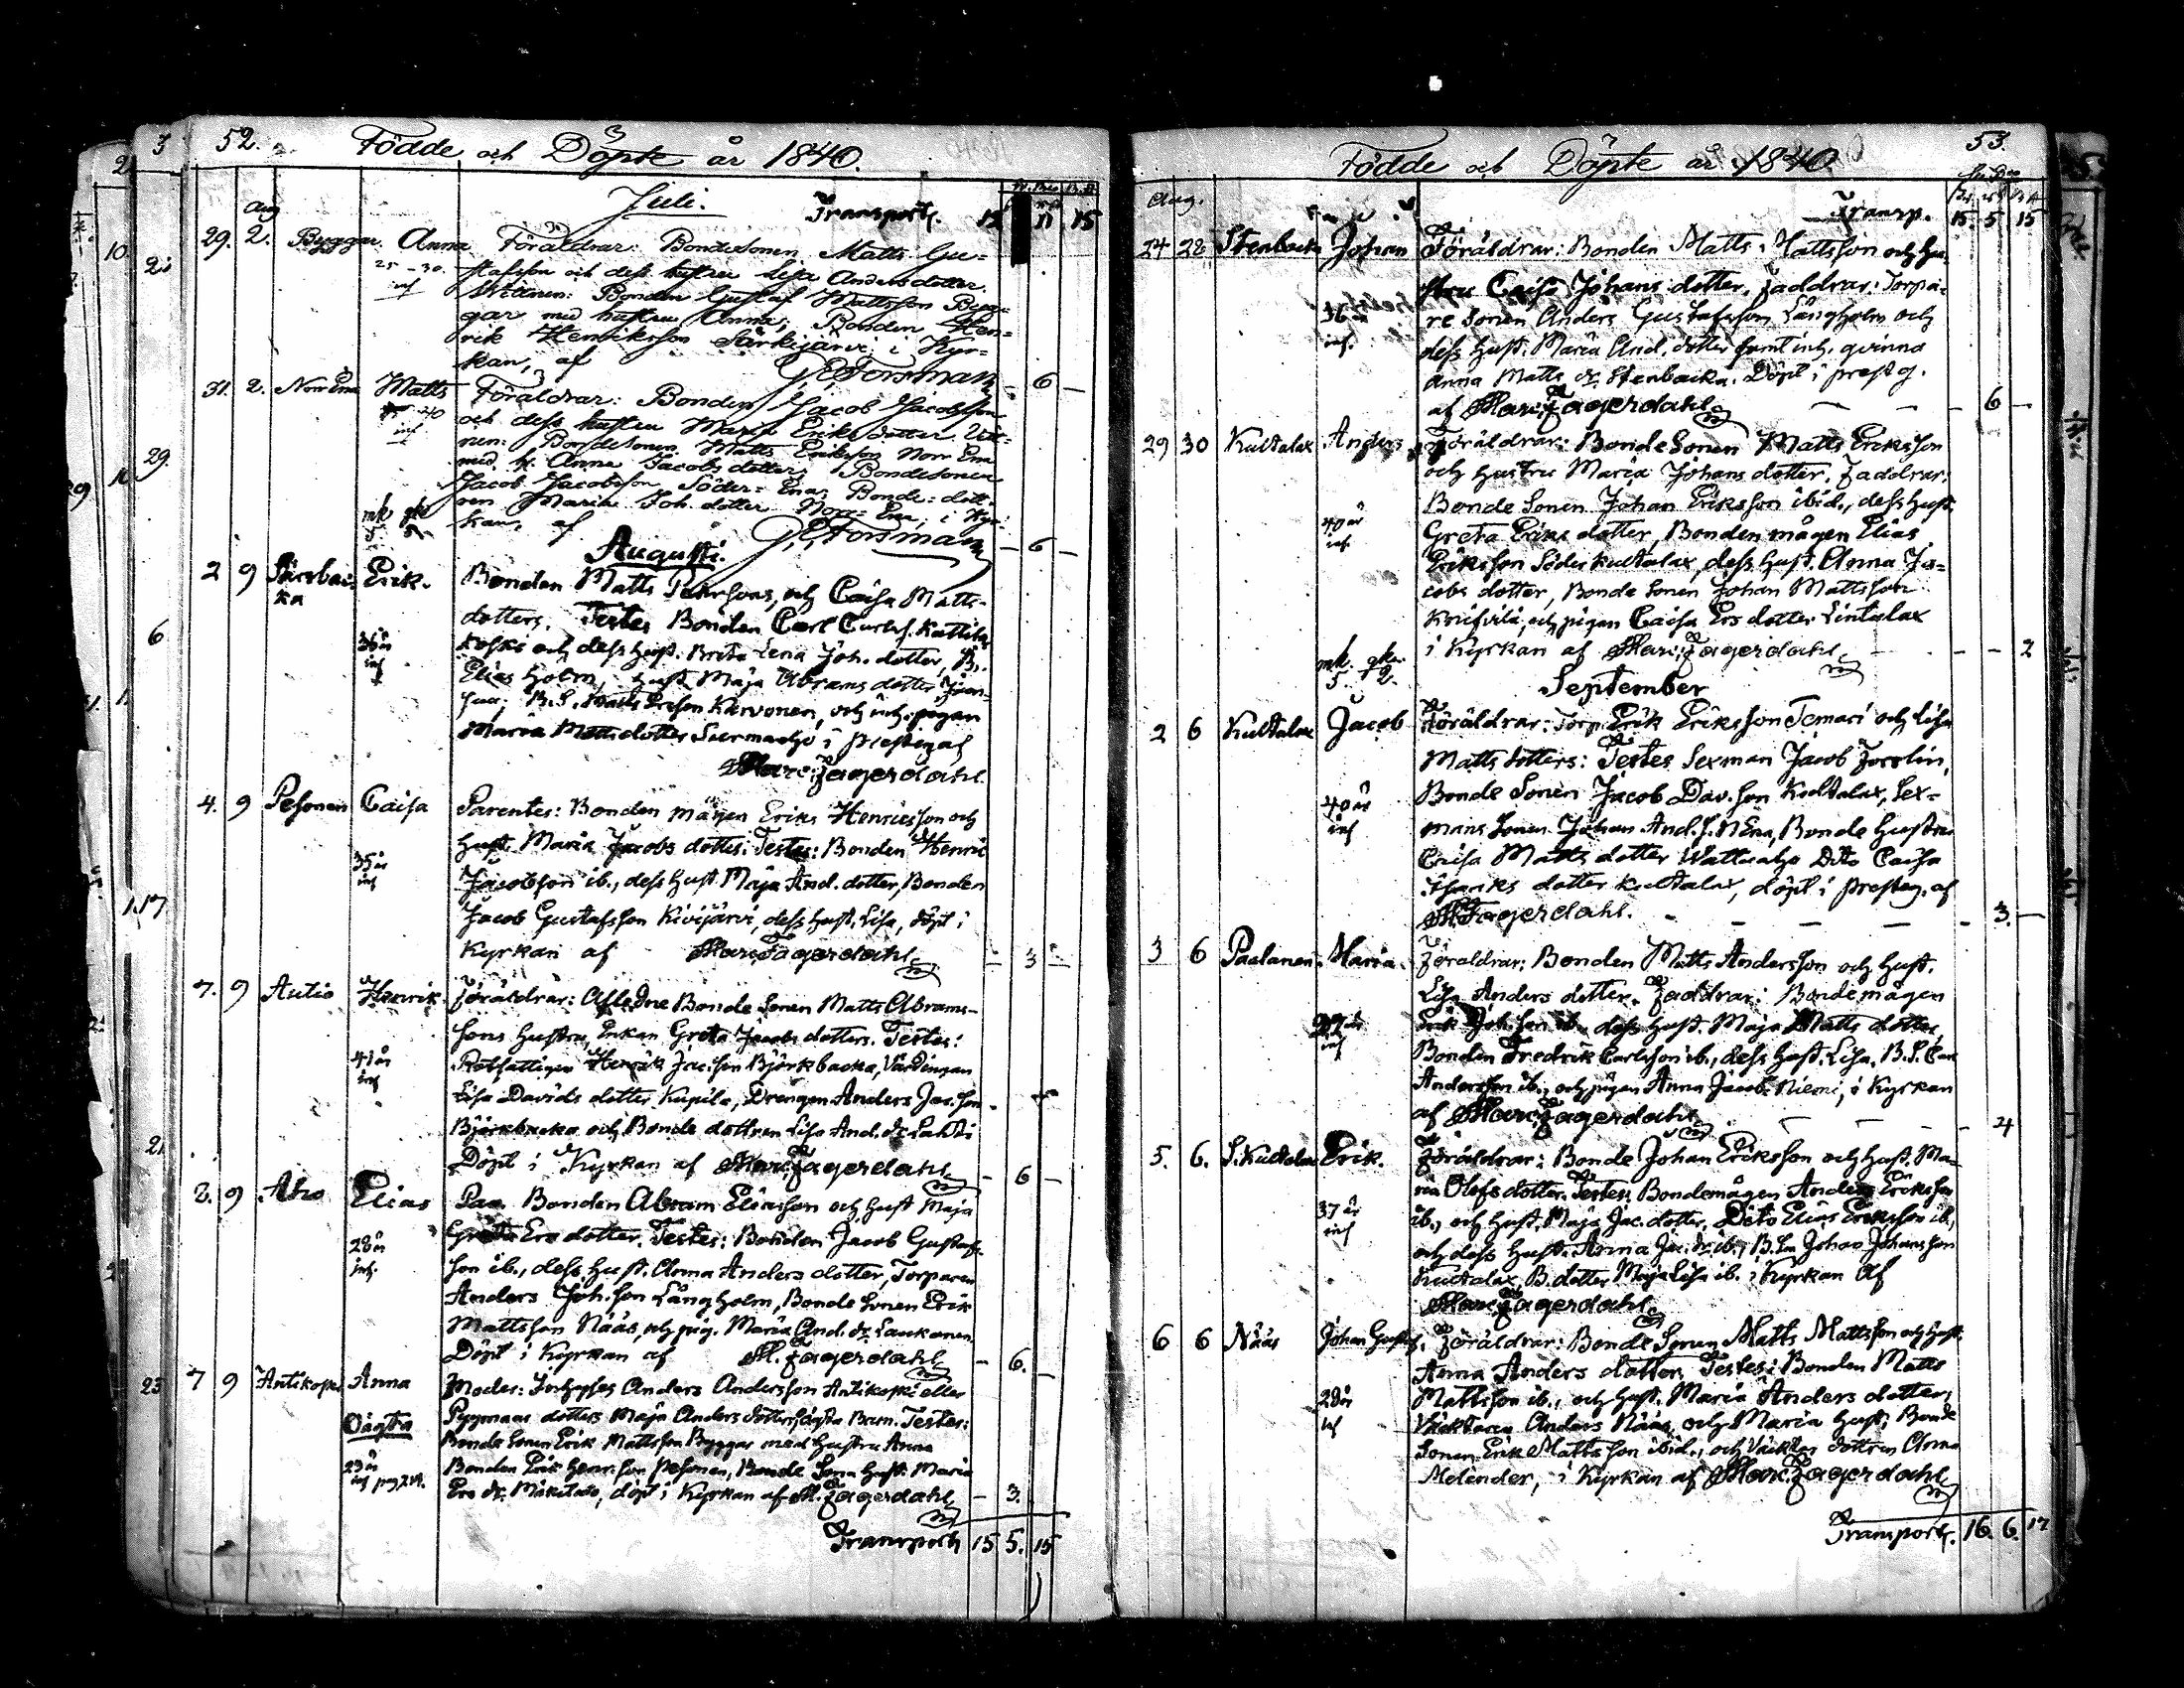 52.
Födde och Döpte år 1840.
Juli.
Aug
Transport. 15 11 15
29. 2. Byggar Anna Föräldrar: Bondesonen Matts Gu-
25-30. stafsson och dess hustru Lisa Andersdotter.
inf Vittnen: Bonden Gustaf Mattsson Byg-
gar med hustru Anna, Bonden Hen-
rik Henriksson Särkijärvi i Kyr-
kan, af G. E. Forsman - 6 -
31. 2. Norr Ena Matts Föräldrar: Bonden Jacob Jacobsson
40 och dess hustru Maria Eriks dotter. Vitt-
inf nen: Bondesonen Matts Eriksson Norr Ena
med h. Anna Jacobs dotter, Bondesonen
Jacob Jacobsson Söder-Ena, Bonde-dott-
ren Maria Joh. dotter Norr-Ena, i Kyr-
kan, af G. E. Forsman - 6 -
mk gk
5. 5
Augusti.
2 9 Erik. Bonden Matts Pehrsons, och Caisa Matts-
ka dotters. Testes Bonden Carl Carls s. Kattila
36 år koski och dess hust. Brita Lena Joh. dotter, B.
inf Elias Holm, hust. Maja Abrams dotter
B.S. Matts Ersson Karvonen, och inh. pigan
Maria Matts dotter i prestg. af
Mari: Fagerdahl.
4. 9 Pesonen Caisa Parentes: Bonden mågen Eriks Henricsson och
Hust. Maria Jacobs dotter. Testes: Bonden Henric
35 år Jacobsson ib., dess hust. Maja And. dotter, Bonden
inf Jacob Gustafsson Kivijärvi, dess hust. Lisa, döpt i
Kyrkan af Mari: Fagerdahl - 3 -
7. 9 Autio Henrik. Föräldrar: Aflednе Bonde Sonen Matts Abrams-
sons hustru, Enkan Greta Jacobs dotters. Testes:
41 år Rotfattigen Henrik Jac. son Björkbacka, Värdinnan
inf Lisa Davids dotter Kupila, Drängen Anders Jac. son
Björkbacka och Bonde dottren Lisa And. dr. Lahti
Döpt i Kyrkan af Mari: Fagerdahl - 6 -
8. 9 Aho Elias Par. Bonden Abram Eliasson och hust Maja
Greta Ers dotter. Testes: Bonden Jacob Gustafs-
28 år son ib., dess hust. Anna Anders dotter, Torparen
inf. Anders Joh. son Långholm, Bonde Sonen Erik
Mattsson Nääs, och pig. Maria And. dr. Laukonen
Döpt i Kyrkan af M. Fagerdahl - 6. -
7 9 Antikoski Anna Moder: Inhyses Anders Andersson Antikoski eller
Oägta dotters Maja Anders dotters oägta Barn. Testes:
Bonde Sonen Erik Mattsson Byggar med hustru Anna
29 år Bonden Erik Henr. son Pesonen, Bonde Sona hust. Maria
inf Ers dr. döpt i Kyrkan af M. Fagerdahl - 3.
Transport 15 5. 15
53.
Födde och Döpte år 1840.
Aug.
Transp. 15. 5 15
24 28 Stenbacka Johan Föräldrar: Bonden Matts Mattsson och hu-
stru Caisa Johans dotter, Faddrar: Torpa-
36 år re sonen Anders Gustafsson Långholm och
inf. dess hust. Maria And. dotter samt inh. qvinna
Anna Matts dr. Stenbacka. Döpt i prestg.
af Mari: Fagerdahl - 6 -
29 30 Kultalax Anders Föräldrar: Bonde Sonen Matts Eriksson
och hustru Maria Johans dotter, Faddrar:
Bonde Sonen Johan Eriksson ibid., dess hust.
40 år Greta Eriks dotter, Bonden mågen Elias
inf. Eriksson Söderkultalax, dess hust. Anna Ja-
cobs dotter, Bonde Sonen Johan Mattsson
och pigan Caisa Ers dotter Lintulax
i Kyrkan af Mari: Fagerdahl - - 2
mk. gk.
5. 2.
September
2 6 Kultalax Jacob Föräldrar: Torp. Erik Eriksson Temari och Lisa
Matts dotters: Testes Sexman Jacob Forslin,
40 år Bonde Sonen Jacob Dav. son Kultalax, Sex-
inf mans Sonen Johan And. s. N Ena, Bonde hustru
Caisa Matts dotter Wattuaho Dito Caisa
dotter Kultalax, döpt i prestg. af
M. Fagerdahl. - 3. -
3 6 Paalanen. Maria. Föräldrar: Bonden Matts Andersson och hust.
Lisa Anders dotter. Faddrar: Bondemågen
Erik Joh. son ib., dess hust. Maja Matts dotter,
inf Bonden Fredrik Carlsson ib., dess hust. Lisa, B.S. Carl
Andersson ib., och pigan Anna Jacob. Niemi, i Kyrkan
af Mari: Fagerdahl - 4
5. 6. S. Kultalax Erik. Föräldrar: Bonde Johan Eriksson och hust. Ma-
ria Olofs dotter. Testes: Bondemågen Anders Eriksson
37 år ib., och hust. Maja Jac. dotter, Dito Elias Eriksson ib.,
inf och dess hust. Anna Jac. dr. ib., B. Son Johan Johansson
Kultalax, B. dotter Maja Lisa ib. i Kyrkan af
Mari: Fagerdahl
6 6 Nääs Johan Gustaf. Föräldrar: Bonde Sonen Matts Mattsson och hust.
Anna Anders dotter, Testes: Bonden Matts
28 år Mattsson ib., och hust. Maria Anders dotter,
inf Väktaren Anders Nääs, och Maria hust; Bonde
Sonen Erik Mattsson ibid., och Väktar dottren Anna
Melender, i Kyrkan af Mari: Fagerdahl
Transport. 16. 6. 17